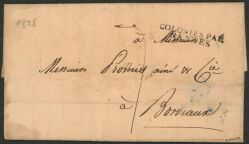 1828
COLONIES PAR
NANTES
à Messieurs
Messieurs Promis ainé & Cie
à
Bordeaux